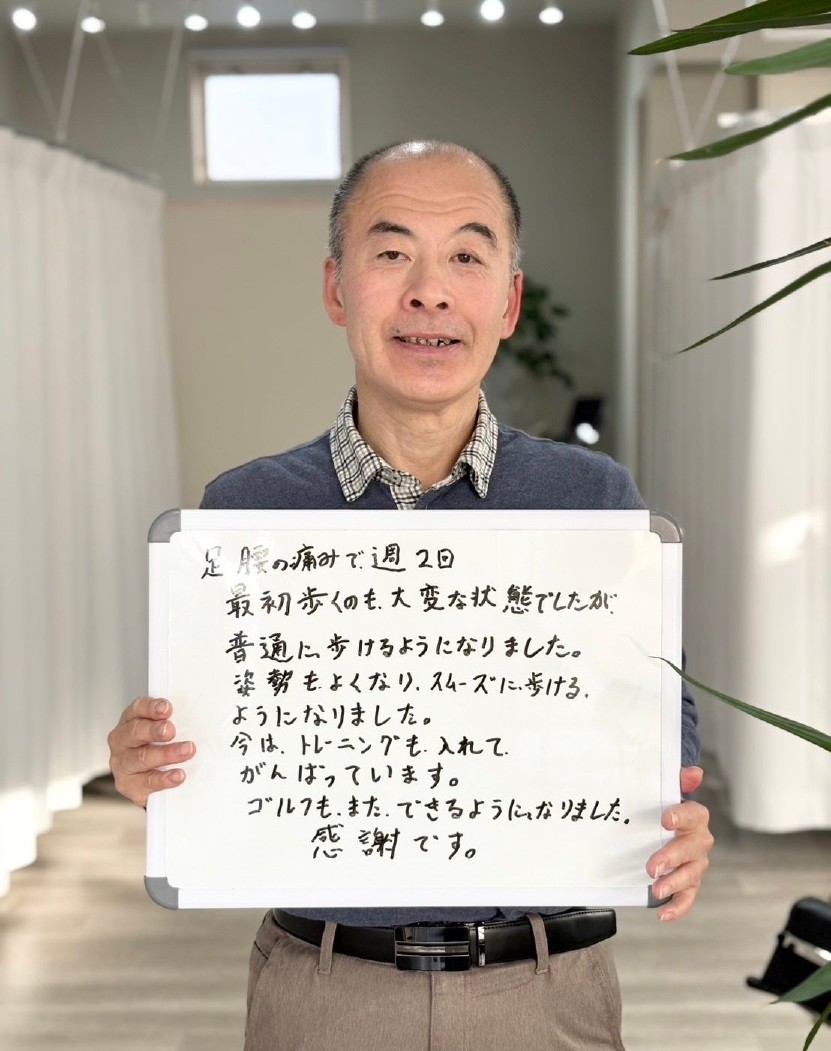 足腰の痛みで、週2回
最初歩くのも、大変な状態でしたが、
普通に、歩けるようになりました。
姿勢も、よくなり、スムーズに、歩ける、
ようになりました。
今は、トレーニングも、入れて、
がんばっています。
ゴルフも、また、できるように、なりました。
感謝です。